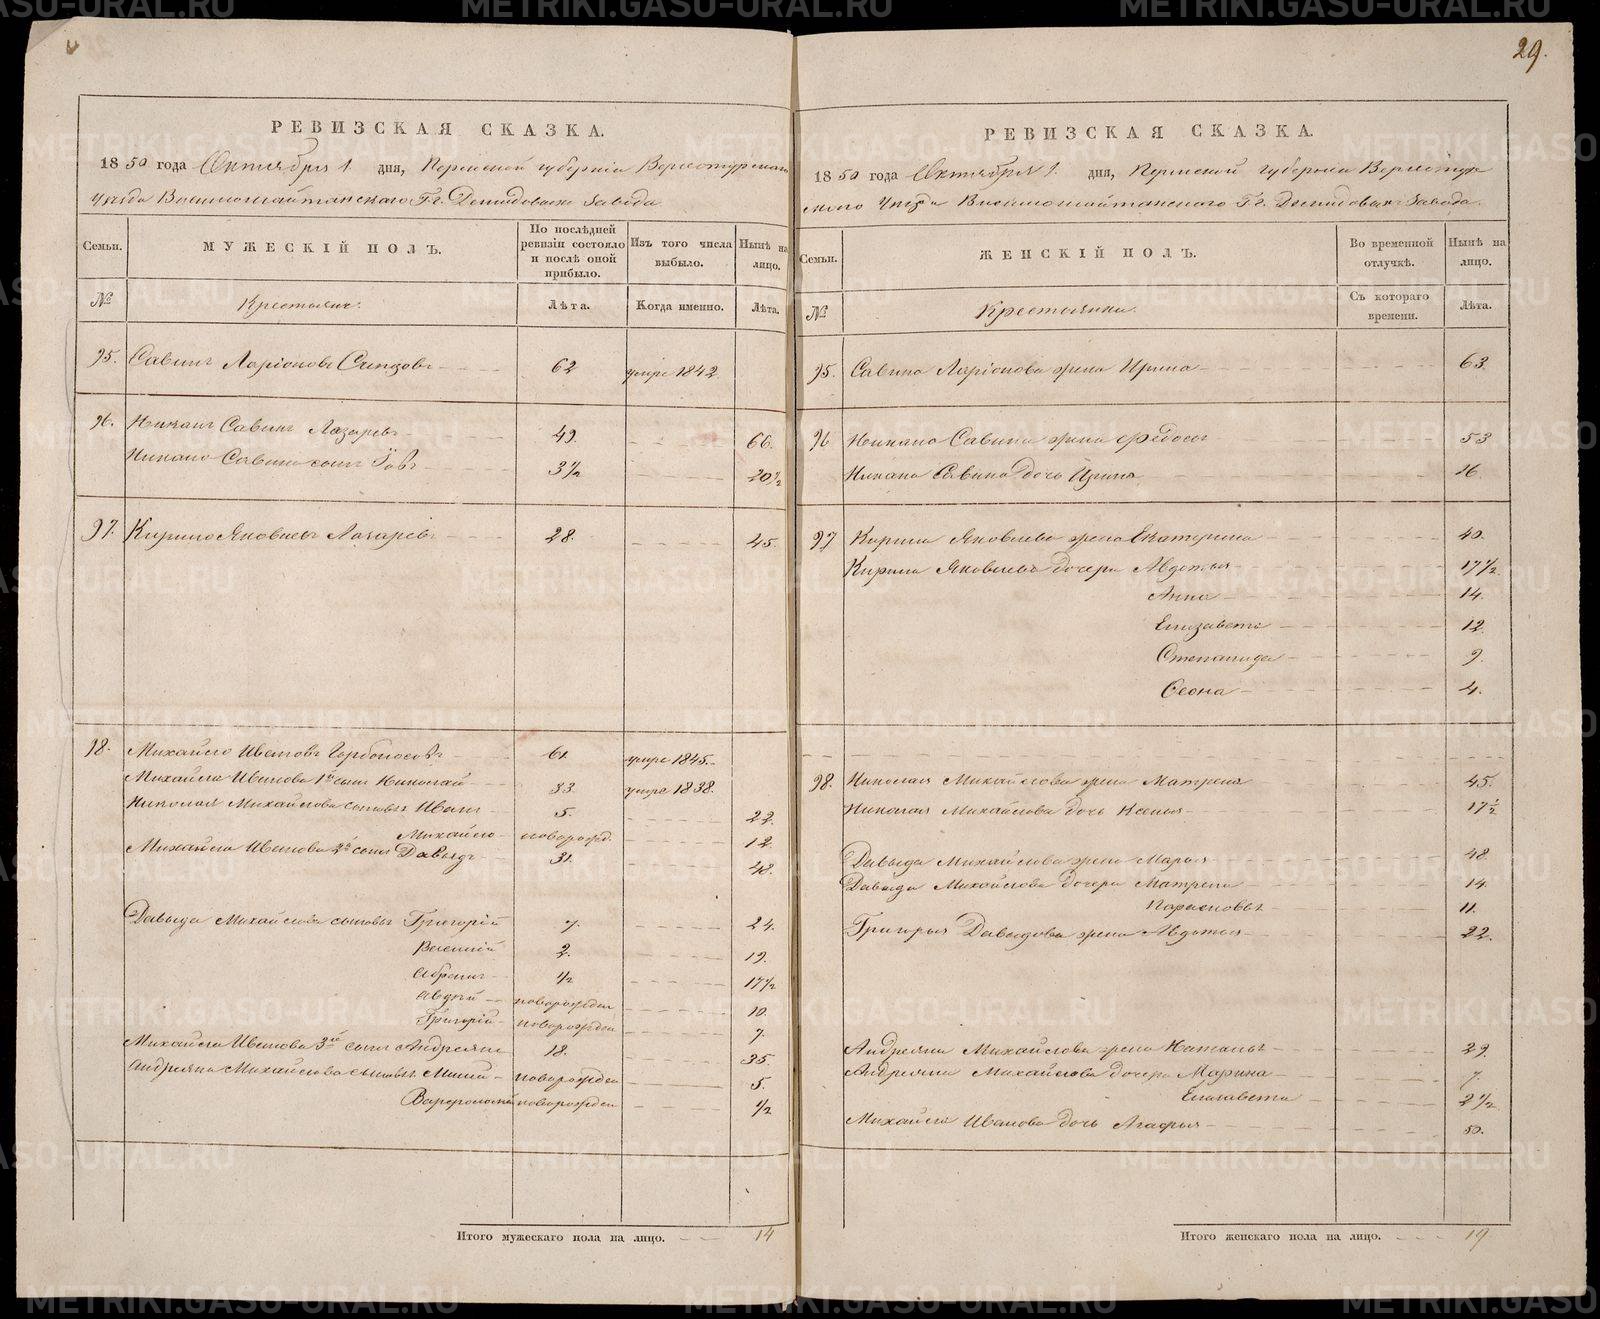 29.
РЕВИЗСКАЯ СКАЗКА.
1850 года Октября 1. дня, Пермской губерніи Верхотурскаго
уѣзда Висимошайтанскаго Гг. Демидовыхъ Завода
Семьи.
МУЖЕСКІЙ ПОЛЪ.
По послѣдней ревизіи состояло и послѣ оной прибыло.
Изъ того числа выбыло.
Нынѣ на лицо.
№
Крестьянъ.
Лѣта.
Когда именно.
Лѣта.
95. Савинъ Ларіоновъ 62 умре 1842.
96. Савинъ Лазаревъ 49. 66.
Савина сынъ Іовъ 3½ 20½
97. Кирило Яковлевъ Лазаревъ 28. 45.
98. Михайло Ивановъ Горбоносовъ 61. умре 1845.
Михайла Иванова 1й сынъ Николай 33. умре 1838.
Николая Михайлова сыновья Иванъ 5. 22.
Михайло новорожд. 12.
Михайла Иванова 2й сынъ Давыдъ 31. 48.
Давыда Михайлова сыновья Григорій 7. 24.
2. 19.
½ 17½
Авдѣй новорожден 10.
Григорій новорожден 7.
Михайла Иванова 3й сынъ Андреянъ 18. 35.
Андреяна Михайлова сыновья новорожден 5.
новорожден ½
Итого мужескаго пола на лицо. 14
РЕВИЗСКАЯ СКАЗКА.
1850 года Октября 1. дня, Пермской губерніи Верхотур
скаго Уѣзда Висимошайтанскаго Гг. Демидовыхъ Завода.
Семьи.
ЖЕНСКІЙ ПОЛЪ.
Во временной отлучкѣ.
Нынѣ на лицо.
№
Крестьянки.
Съ котораго времени.
Лѣта.
95. Савина Ларіонова жена Ирина 63.
96 Савина жена Федосья 53
Савина дочь Ирина 16.
97 Кирила Яковлева жена Екатерина 40.
Кирила Яковлева дочери Авдотья 17½.
Анна 14.
Елизавета 12.
Степанида 9.
4.
98. Николая Михайлова жена Матрена 45.
Николая Михайлова дочь Ксенья 17½
Давыда Михайлова жена Марья 48.
Давыда Михайлова дочери Матрена 14.
Парасковья 11.
Григорья Давыдова жена Авдотья 22.
Андреяна Михайлова жена Наталья 29.
Андреяна Михайлова дочери Марина 7.
Елизавета 2½
Михайла Иванова дочь Агафья 50.
Итого женскаго пола на лицо. 19
METRIKI.GASO-URAL.RU